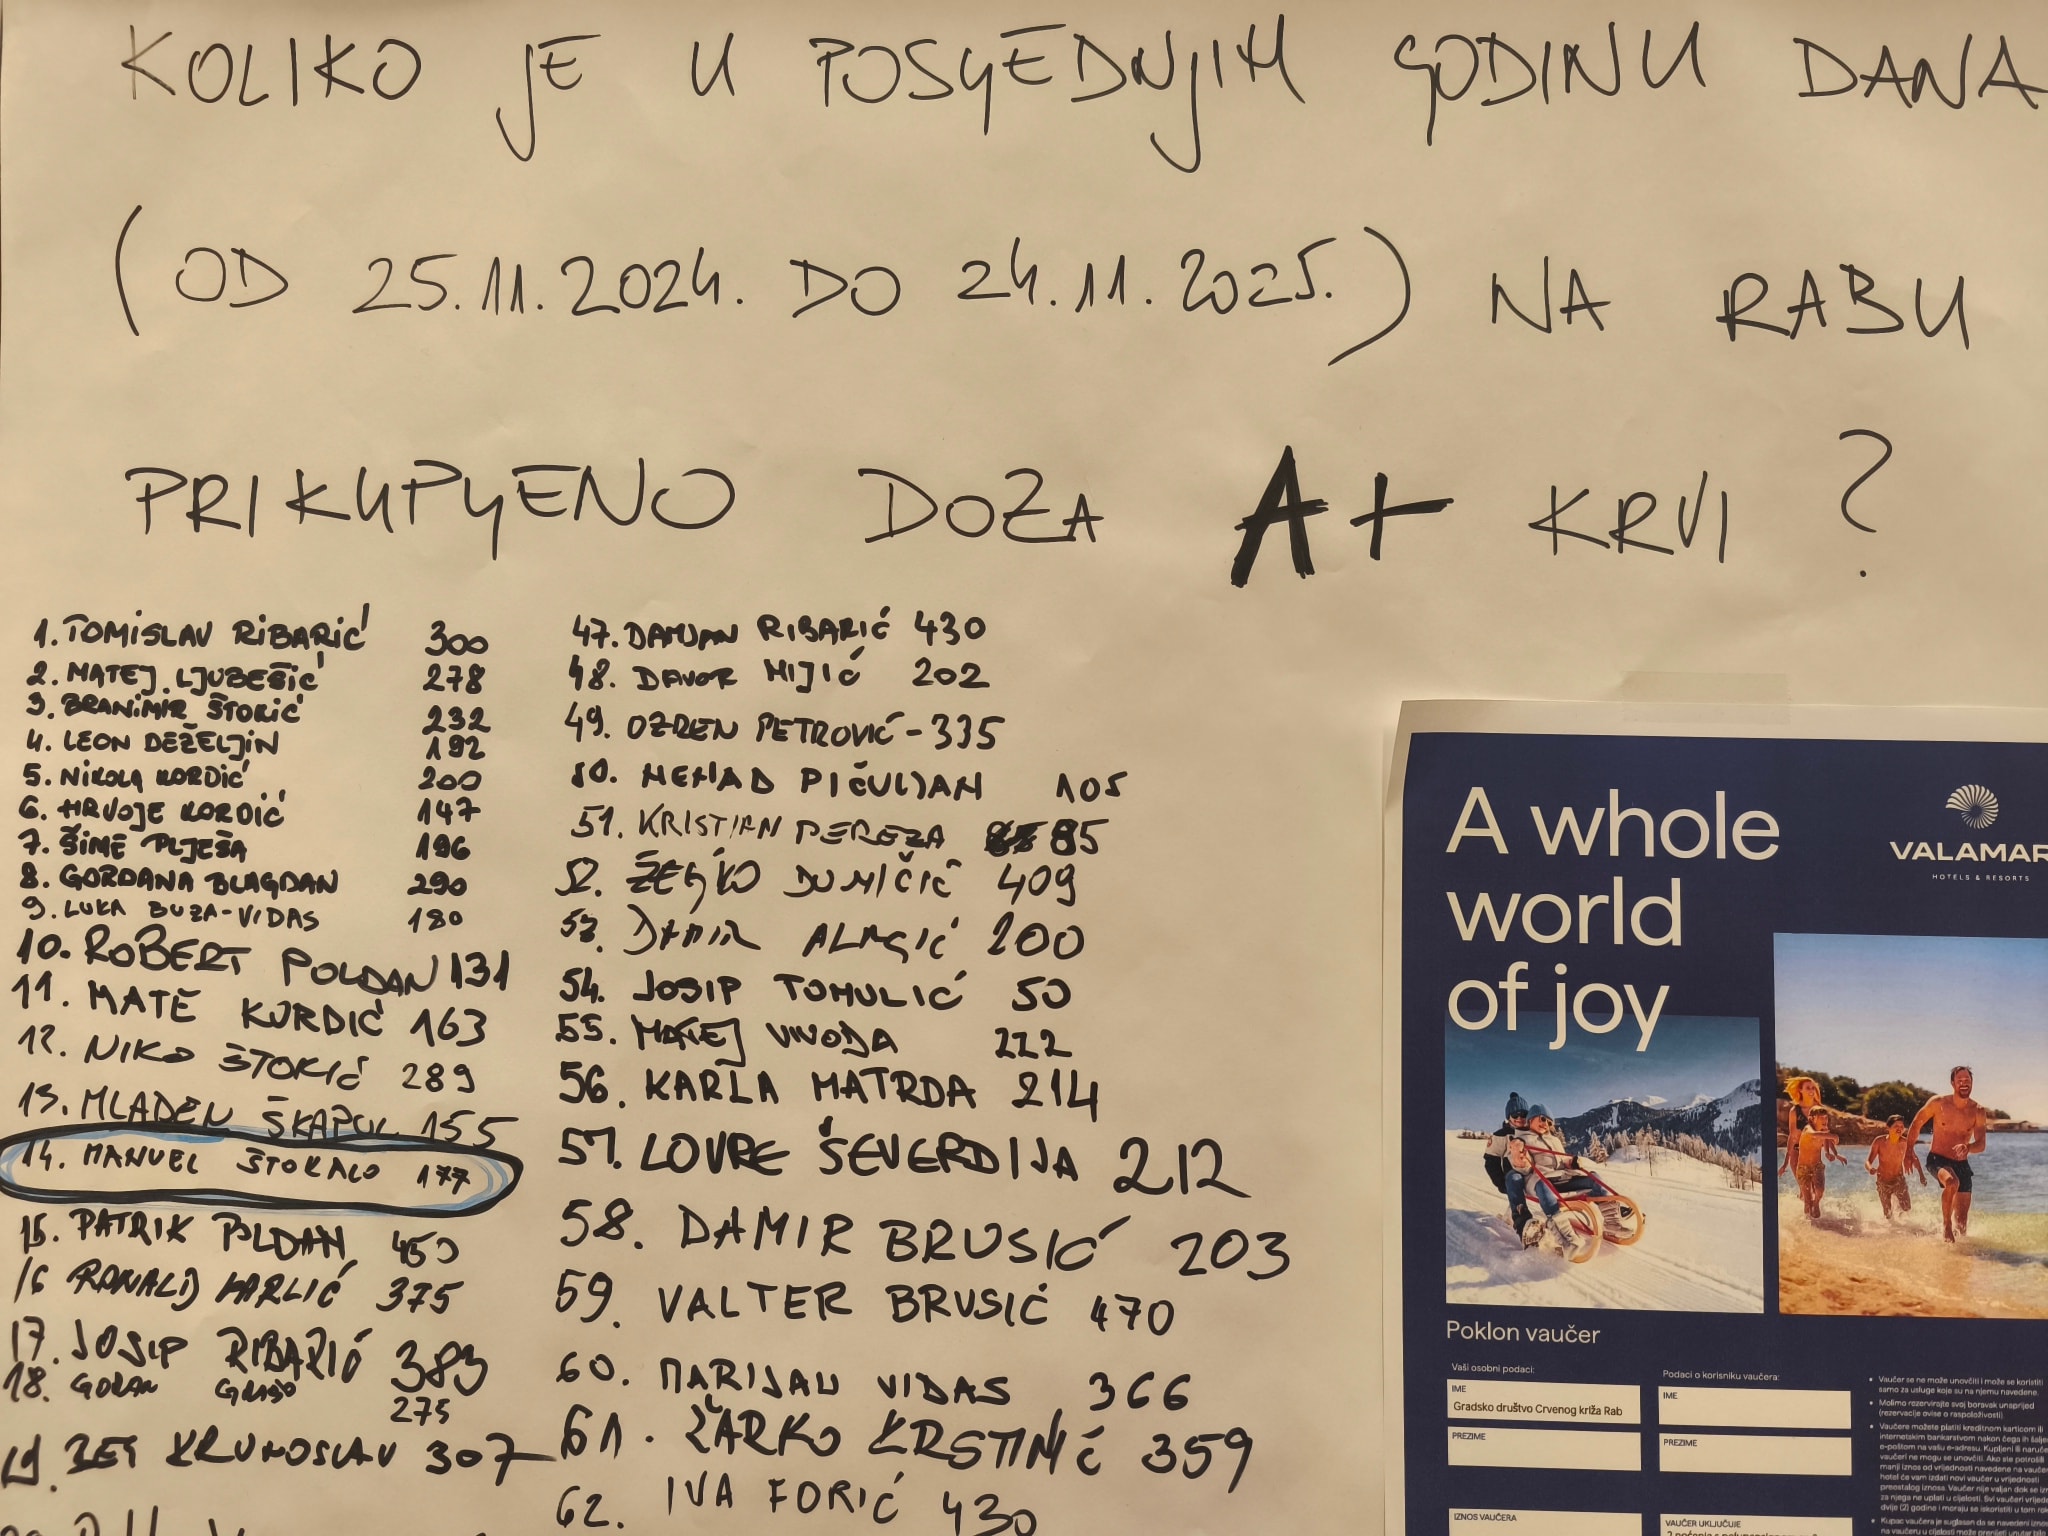 KOLIKO JE U POSLJEDNJIH GODINU DANA
(OD 25.11.2024. DO 24.11.2025.) NA RABU
PRIKUPLJENO DOZA A+ KRVI?
1. TOMISLAV RIBARIĆ 300
2. MATEJ LJUBEŠIĆ 278
3. BRANIMIR ŠTOKIĆ 232
4. LEON DEŽELJIN 192
5. NIKOLA KORDIĆ 200
6. HRVOJE KORDIĆ 147
7. ŠIME PLJEŠA 196
8. GORDANA BLAGDAN 290
9. LUKA BUZA-VIDAS 180
10. ROBERT POLDAN 131
11. MATE KORDIĆ 163
12. NIKO ŠTOKIĆ 289
13. MLADEN ŠKAPUL 155
14. MANUEL ŠTOKALO 177
15. PATRIK POLDAN 450
16 RANALD HARLIĆ 375
17. JOSIP RIBARIĆ 383
18. GORAN 275
19. KRUNOSLAV 307
47. DAMJAN RIBARIĆ 430
48. DAVOR MIJIĆ 202
49. OZREN PETROVIĆ - 335
50. NENAD PIČULJAN 105
51. KRISTIJAN PEREZA 85
52. ŽELJKO DUMIČIĆ 409
53. DAMIR ALAGIĆ 200
54. JOSIP TOMULIĆ 50
55. MATEJ VIVODA 222
56. KARLA MATRDA 214
57. LOVRE ŠEVERDIJA 212
58. DAMIR BRUSIĆ 203
59. VALTER BRUSIĆ 470
60. MARIJAN VIDAS 366
61. ŽARKO KRSTINIĆ 359
62. IVA FORIĆ 430
A whole
world
of joy
VALAMAR
HOTELS & RESORTS
Poklon vaučer
Vaši osobni podaci:
IME
Gradsko društvo Crvenog križa Rab
PREZIME
IZNOS VAUČERA
Podaci o korisniku vaučera:
IME
PREZIME
VAUČER UKLJUČUJE
• Vaučer se ne može unovčiti i može se koristiti
samo za usluge koje su na njemu navedene.
• Molimo rezervirajte svoj boravak unaprijed
(rezervacije ovise o raspoloživosti).